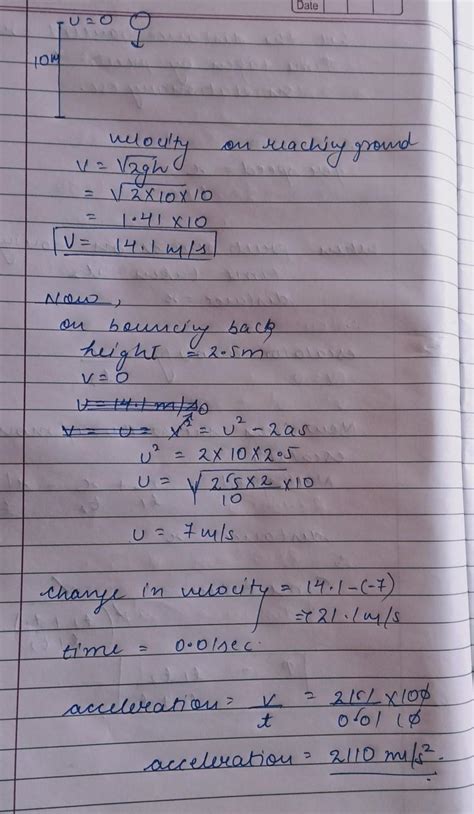 Date
u = 0
10m
velocity on reaching ground
v = √2gh
= √2×10×10
= 1.41 × 10
v = 14.1 m/s
Now,
on bouncing back
height = 2.5m
v = 0
v = 14.1 m/s
v = u = v² = u² - 2as
u² = 2 × 10 × 2.5
u = √25×2/10 ×10
u = 7 m/s
change in velocity = 14.1 - (-7)
⇒ 21.1 m/s
time = 0.01 sec.
acceleration = v/t = 211/0.01 × 100/10
acceleration = 2110 m/s².